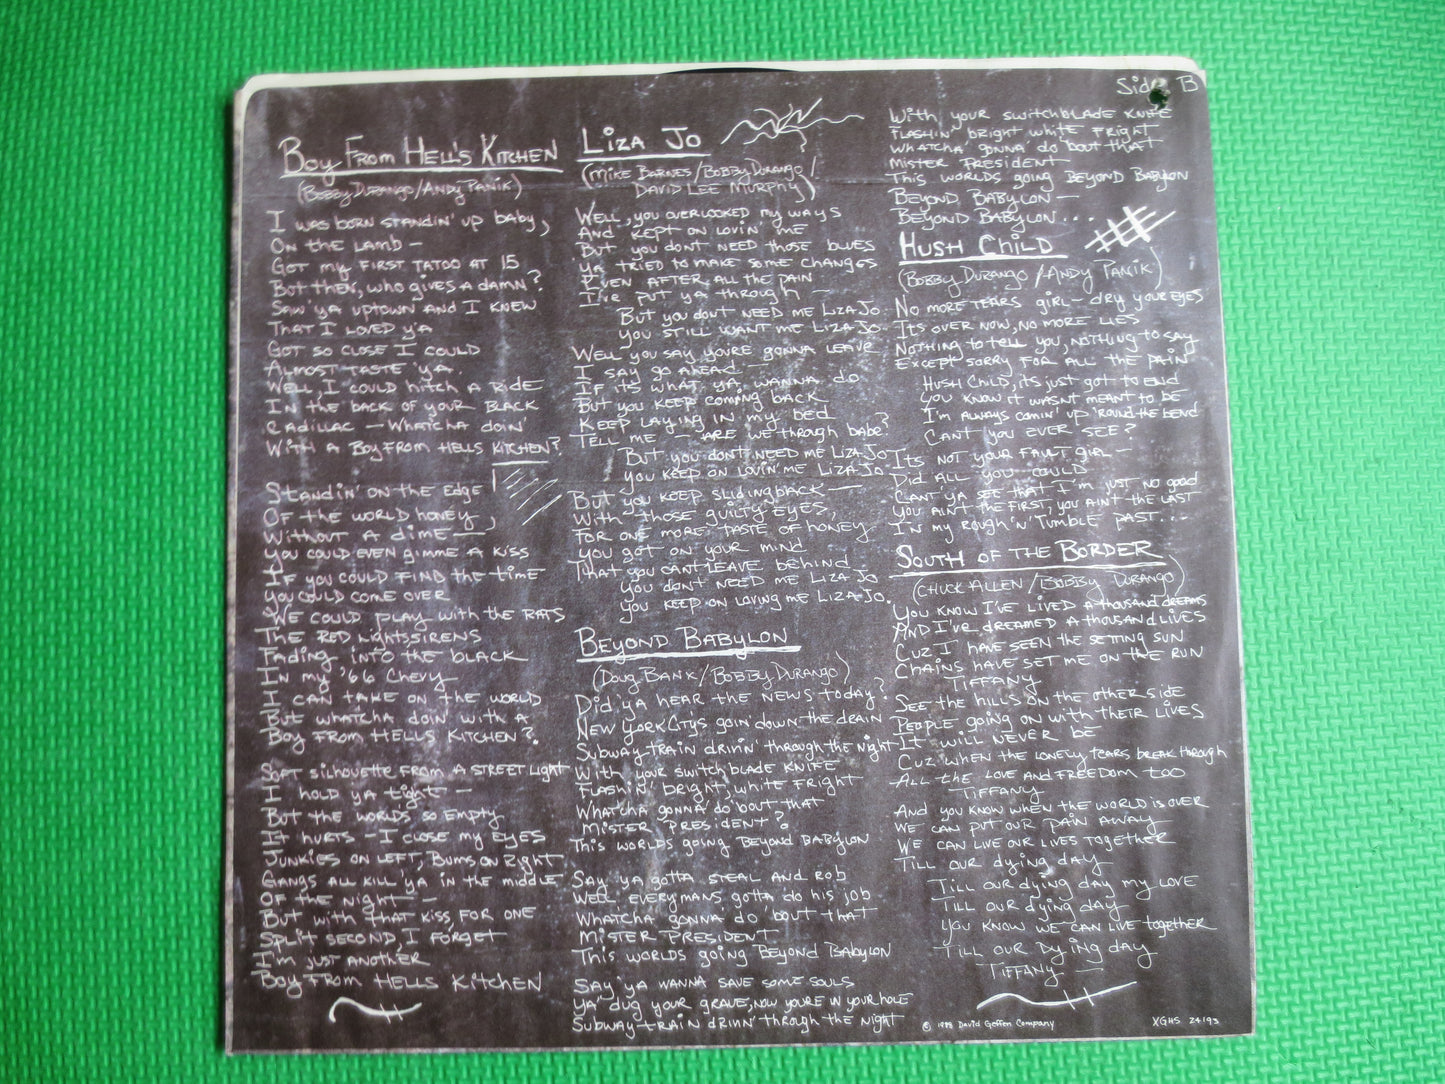 Side B
Boy From Hell's Kitchen
(Bobby Durango/Andy Panik)
I was born standin' up baby,
On the lamb -
Got my first tatoo at 15
But then, who gives a damn?
Saw ya uptown and I knew
That I loved y'a
Got so close I could
Almost taste 'ya
Well, I could hitch a ride
In the back of your black
Cadillac - Whatcha doin'
With a Boy From Hells Kitchen?
Standin' on the edge
Of the world honey,
Without a dime -
You could even gimme a kiss
If you could find the time
You could come over
We could play with the rats
The red lights, sirens
Fading into the black
In my '66 Chevy
I can take on the world
But whatcha doin' with a
Boy From Hells Kitchen?
Soft silhouette from a street light
I hold ya tight -
But the worlds so empty
It hurts - I close my eyes
Junkies on left, Bums on Right
Gangs all kill 'ya in the middle
Of the night -
But with that kiss, for one
Split second, I forget
I'm just another
Boy From Hells Kitchen
Liza Jo
(Mike Barnes/Bobby Durango/
David Lee Murphy)
Well, you overlooked my ways
And kept on lovin' me
But you dont need those blues
Ya tried to make some changes
Even after all the pain
I've put ya through -
But you dont need me Liza Jo
You still want me Liza Jo
Well you say youre gonna leave
I say go ahead -
If its what ya wanna do
But you keep coming back
Keep laying in my bed
Tell me - are we through babe?
But you dont need me Liza Jo
You keep on lovin' me Liza Jo
But you keep sliding back -
With those guilty eyes,
For one more taste of honey
You got on your mind
That you cant leave behind
You dont need me Liza Jo
You keep on loving me Liza Jo.
Beyond Babylon
(Doug Bank/Bobby Durango)
Did ya hear the news today?
New York Citys goin' down the drain
Subway train drivin' through the night
With your switchblade knife
Flashin' bright white fright
Whatcha' gonna' do 'bout that
Mister President?
This worlds going Beyond Babylon
Say ya gotta steal and rob
Well everymans gotta do his job
Whatcha' gonna' do 'bout that
Mister President
This worlds going Beyond Babylon
Say ya wanna save some souls
Ya' dug your grave, now youre in your hole
Subway train drivin' through the night
With your switchblade knife
Flashin' bright white fright
Whatcha' gonna' do 'bout that
Mister President
This worlds going Beyond Babylon
Beyond Babylon -
Beyond Babylon...
Hush Child
(Bobby Durango/Andy Panik)
No more tears girl - dry your eyes
Its over now, no more lies
Nothing to tell you, nothing to say
Except sorry for all the pain
Hush Child, its just got to end
You know it wasnt meant to be
I'm always comin' up 'round the bend
Cant you ever see?
Its not your fault girl -
Did all you could
Cant ya see that I'm just no good
You aint the first, you aint the last
In my rough 'n' tumble past...
South of the Border
(Chuck Allen/Bobby Durango)
You know I've lived a thousand dreams
And I've dreamed a thousand lives
Cuz I have seen the setting sun
Chains have set me on the run
Tiffany
See the hills on the other side
People going on with their lives
It will never be
Cuz when the lonely tears break through
All the love and freedom too
Tiffany
And you know when the world is over
We can put our pain away
We can live our lives together
Till our dying day
Till our dying day my love
Till our dying day
You know we can live together
Till our dying day
Tiffany -
© David Geffen Company
XGHS 24193